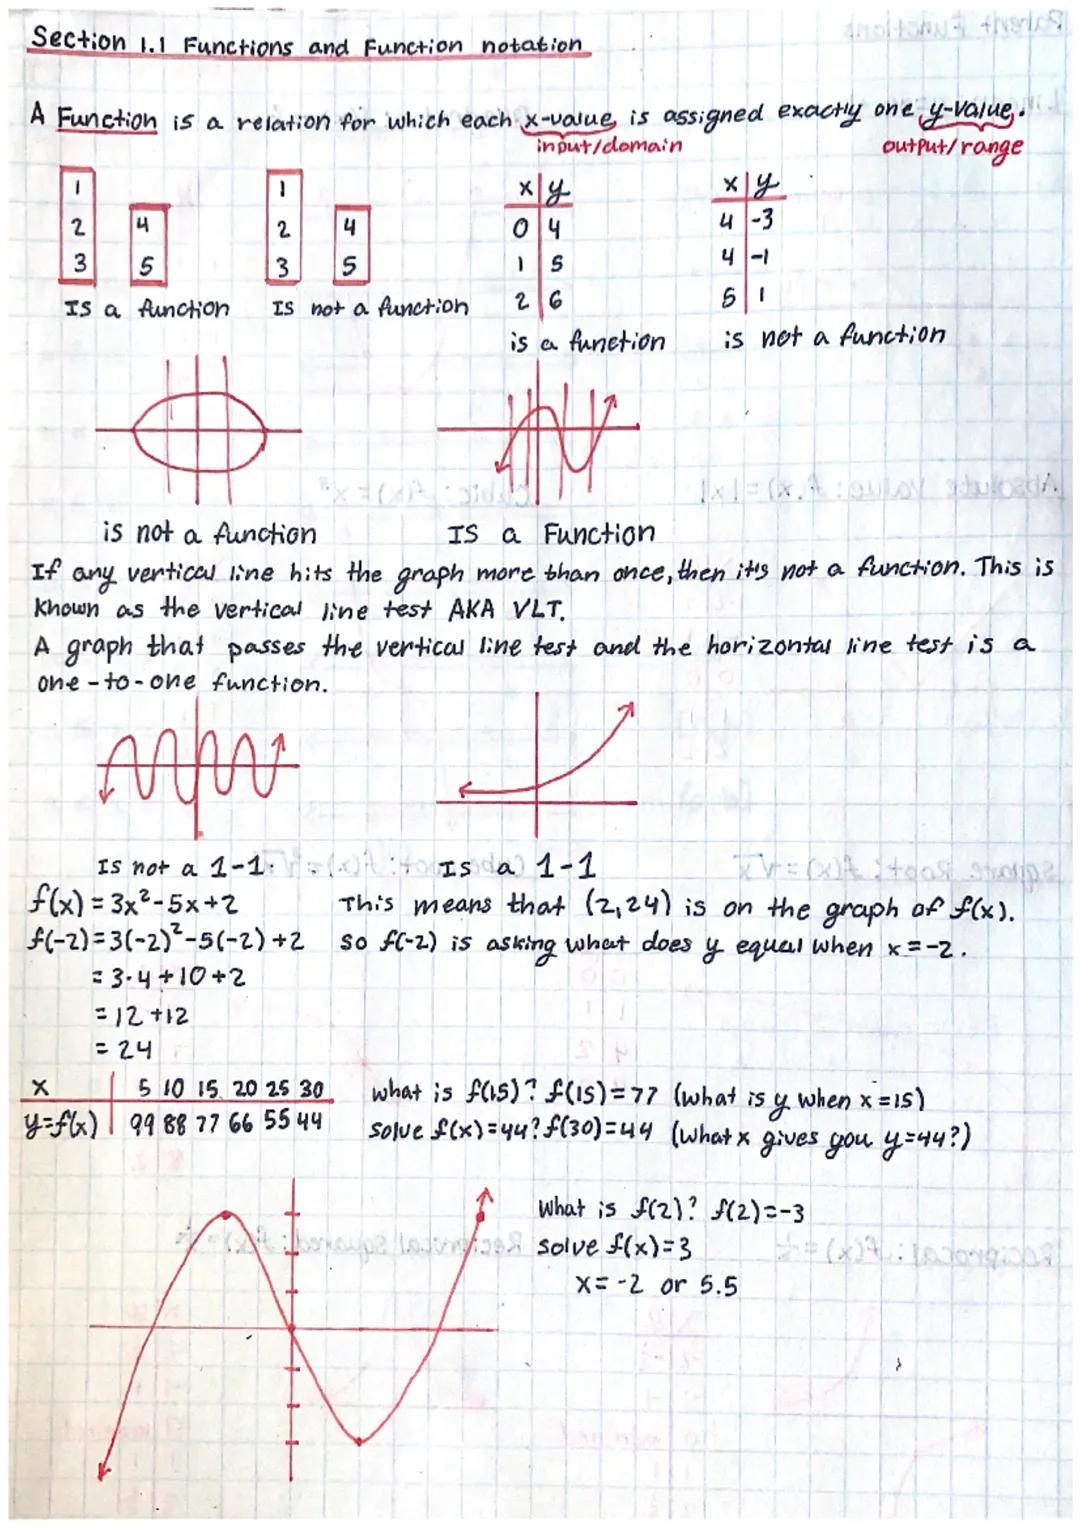 Section 1.1 Functions and Function notation
A Function is a relation for which each x-value is assigned exactly one y-value.
input/domain output/range
1 1 x y x y
2 4 2 4 0 4 4 -3
3 5 3 5 1 5 4 -1
2 6 5 1
Is a function Is not a function
is a function is not a function
is not a function Is a Function
If any vertical line hits the graph more than once, then it's not a function. This is
known as the vertical line test AKA VLT.
A graph that passes the vertical line test and the horizontal line test is a
one-to-one function.
Is not a 1-1. Is a 1-1
f(x) = 3x²-5x+2 This means that (2,24) is on the graph of f(x).
f(-2)=3(-2)²-5(-2)+2 so f(-2) is asking what does y equal when x=-2.
= 3·4+10+2
= 12+12
= 24
x 5 10 15 20 25 30 what is f(15)? f(15)=77 (what is y when x=15)
y=f(x) 99 88 77 66 55 44 solve f(x)=44? f(30)=44 (what x gives you y=44?)
What is f(2)? f(2)=-3
solve f(x)=3
x=-2 or 5.5